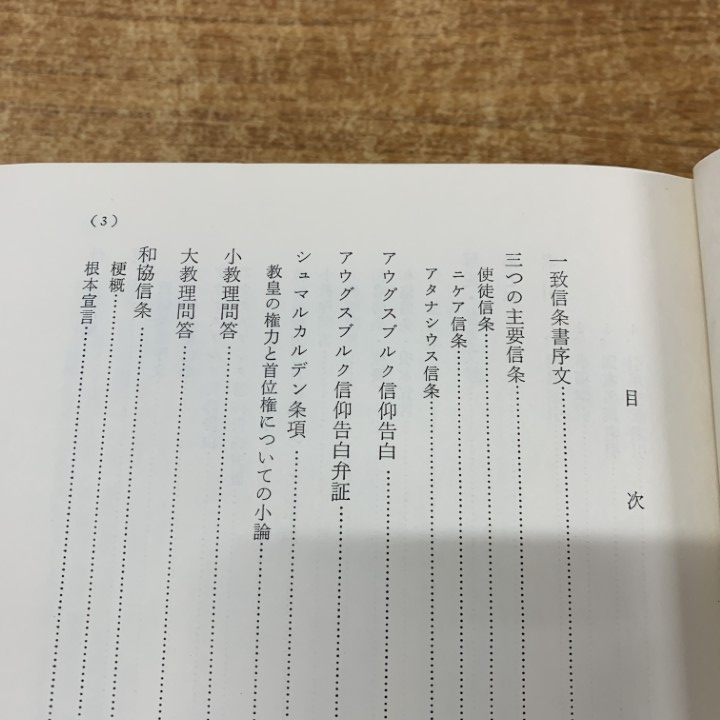 目次
一致信条書序文
三つの主要信条
使徒信条
ニケア信条
アタナシウス信条
アウグスブルク信仰告白
アウグスブルク信仰告白弁証
シュマルカルデン条項
教皇の権力と首位権についての小論
小教理問答
大教理問答
和協信条
梗概
根本宣言
(3)